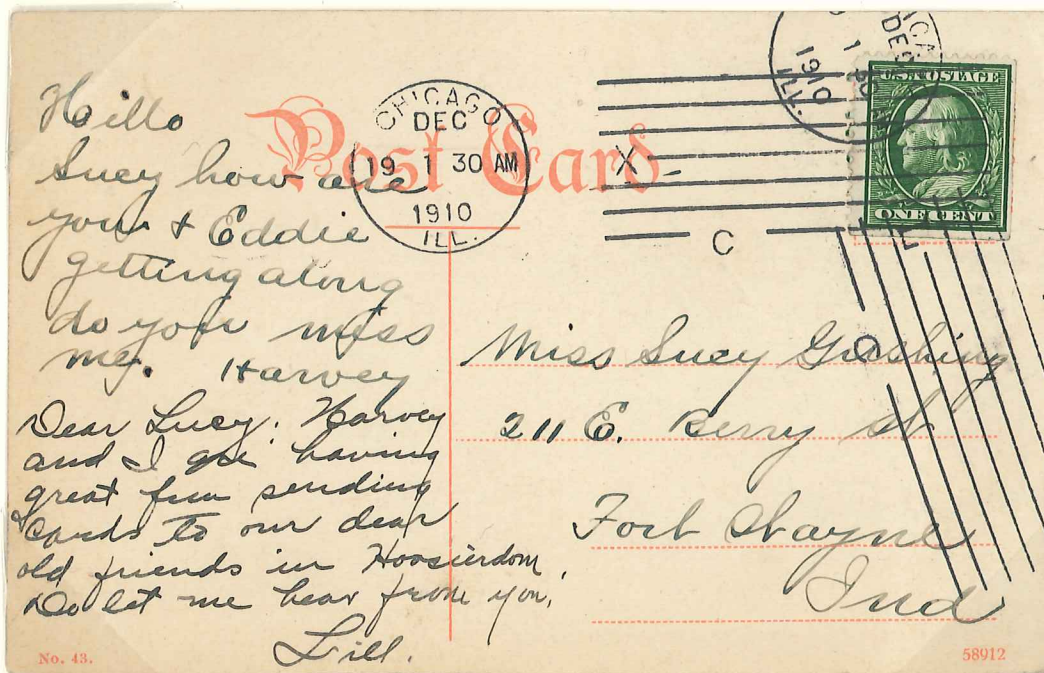 Post Card
CHICAGO
DEC
19 1 30 AM
1910
ILL.
X
C
DEC
1
1910
ILL.
U.S. POSTAGE
ONE CENT
Hillo
Lucy how are
you + Eddie
getting along
do you miss
me. Harvey
Dear Lucy: Harvey
and I are having
great fun sending
Cards to our dear
old friends in Hoosierdom.
Do let me hear from you.
Lill.
Miss Lucy Gushing
211 E. Berry St
Fort Wayne
Ind
No. 43.
58912